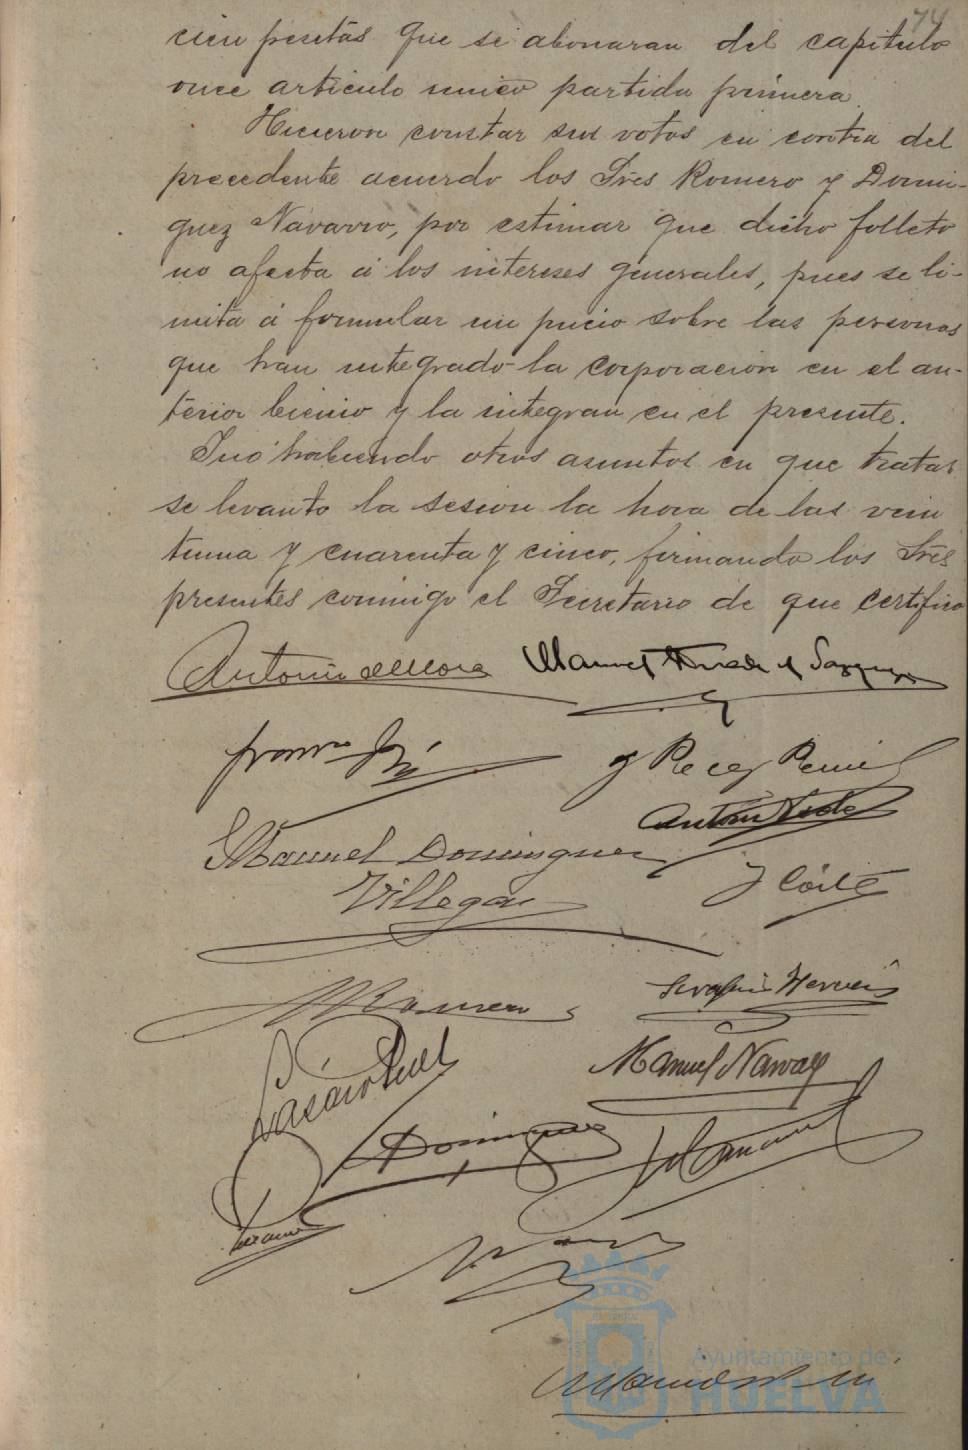 74
cien pesetas que se abonaran del capitulo
once articulo unico partida primera.
Hicieron constar sus votos en contra del
precedente acuerdo los Sres Romero y Domin-
guez Navarro, por estimar que dicho folleto
no afecta á los intereses generales, pues se li-
mita á formular un juicio sobre las personas
que han integrado la corporacion en el an-
terior bienio y la integran en el presente.
Y no habiendo otros asuntos en que tratar
se levanto la sesion la hora de las vein
tiuna y cuarenta y cinco, firmando los Sres
presentes conmigo el Secretario de que certifico
Antonio de Mora Manuel
y
Antonio
Manuel Dominguez
Villegas
y
Romero
Manuel Narvaez
Dominguez
Ayuntamiento de
HUELVA